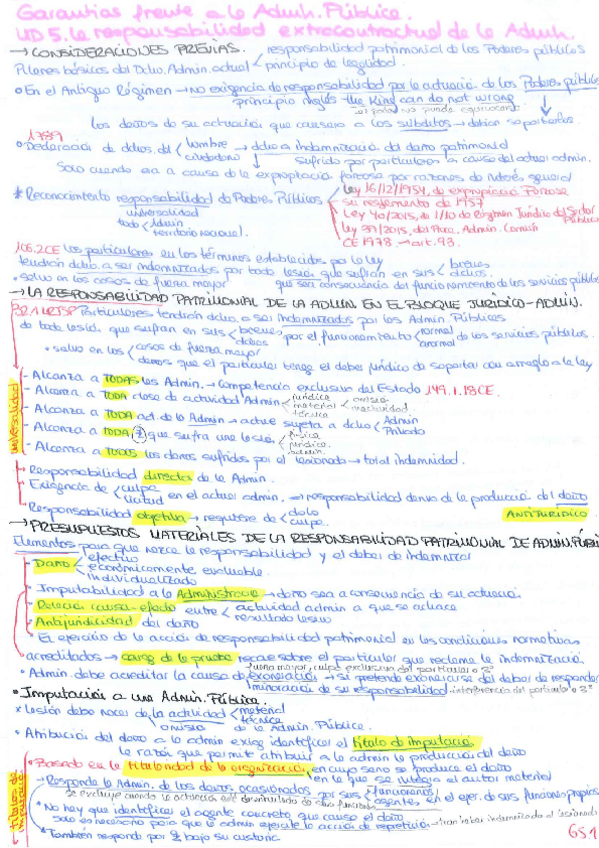 Garantías frente a la Admin. Pública.
UD 5. la responsabilidad extracontractual de la Admin.
→ CONSIDERACIONES PREVIAS. responsabilidad patrimonial de los Poderes públicos
Pilares básicos del Dcho. Admin. actual principio de legalidad.
• En el Antiguo Régimen → No exigencia de responsabilidad por la actuación de los Poderes públicos
principio inglés the king can do not wrong
los daños de su actuación que causara a los súbditos → debían soportarlos.
1789
• Declaración de dchos. del hombre ciudadano → dcho a indemnización del daño patrimonial
sufrido por particulares a causa del actuar admin.
Solo cuando era a causa de la expropiación forzosa por razones de interés general
* Reconocimiento responsabilidad de Poderes Públicos
universalidad
todo Admin
territorio nacional.
ley 16/12/1954, de expropiación Forzosa
su reglamento de 1957
Ley 40/2015, de 1/10 de Régimen Jurídico del Sector Público
ley 39/2015, del Proc. Admin. Común
CE 1978 → art.
106.2 CE los particulares en los términos establecidos por la ley
tendrán dcho. a ser indemnizados por toda lesión que sufran en sus bienes dchos.
• salvo en los casos de fuerza mayor que sea consecuencia del funcionamiento de los servicios públicos
→ LA RESPONSABILIDAD PATRIMONIAL DE LA ADMIN EN EL BLOQUE JURÍDICO-ADMIN.
Particulares tendrán dcho. a ser indemnizados por las Admin Públicas
de toda lesión que sufran en sus bienes dchos por el funcionamiento normal anormal de los servicios públicos.
• salvo en los casos de fuerza mayor
daños que el particular tenga el deber jurídico de soportar con arreglo a la ley
universalidad
- Alcanza a TODAS las Admin. → Competencia exclusiva del Estado 149.1.18 CE.
- Alcanza a TODA clase de actividad Admin jurídica material técnica omisión inactividad
- Alcanza a TODA act. de la Admin → actúe sujeta a dcho Admin Privado
- Alcanza a TODA que sufra una lesión física jurídica
- Alcanza a TODOS los daños sufridos por el lesionado → total indemnidad.
- Responsabilidad directa de la Admin.
- Exigencia de culpa ilicitud en el actuar admin. → responsabilidad deriva de la producción del daño ANTIJURÍDICO
- Responsabilidad objetiva → requiere de dolo culpa.
→ PRESUPUESTOS MATERIALES DE LA RESPONSABILIDAD PATRIMONIAL DE ADMIN. PÚBLI
Elementos para que nazca la responsabilidad y el deber de indemnizar
- Daño efectivo económicamente evaluable. individualizado
- Imputabilidad a la Administración → daño sea a consecuencia de su actuación.
- Relación causa-efecto entre actividad admin a que se achaca resultado lesivo
- Antijuridicidad del daño
El ejercicio de la acción de responsabilidad patrimonial en las condiciones normativas
acreditados → carga de la prueba recae sobre el particular que reclame la indemnización.
fuerza mayor, culpa exclusiva del particular o 3º
• Admin debe acreditar la causa de exoneración → si pretende exonerarse del deber de responder
minoración de su responsabilidad. interferencia del particular o 3º
• Imputación a una Admin. Pública.
* lesión debe nacer de la actividad material técnica
omisión de la Admin. Pública.
• Atribución del daño a la admin exige identificar el título de imputación,
la razón que permite atribuir a la admin la producción del daño
títulos de imputación
• Basado en la titularidad de la organización, en cuyo seno se produce el daño
en la que se integra el autor material
→ Responde la Admin. de los daños ocasionados por sus funcionarios agentes en el ejer. de sus funciones propias
se excluye cuando la actuación esté desvinculada de sus funciones
* No hay que identificar el agente concreto que cause el daño
solo es necesario para que la admin ejercite la acción de repetición → tras haber indemnizado al lesionado
* También responde por bajo su custodia
651